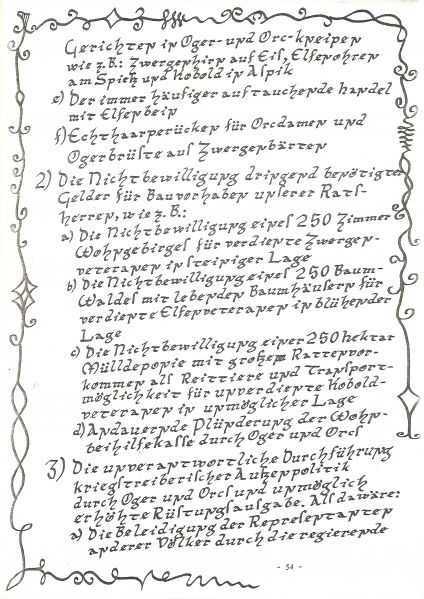 Gerichten in Oger- und Orc-kneipen
wie z.B.: Zwergenhirn auf Eis, Elfenohren
am Spieß und Kobold in Aspik
e) Der immer häufiger auftauchende Handel
mit Elfenbein
f) Echthaarperücken für Orcdamen und
Ogerbrüste aus Zwergenbärten
2) Die Nichtbewilligung dringend benötigter
Gelder für Bauvorhaben unserer Rats-
herren, wie z.B.:
a) Die Nichtbewilligung eines 250 Zimmer
Wohngebirges für verdiente Zwergen-
veteranen in steiniger Lage
b) Die Nichtbewilligung eines 250 Baum-
Waldes mit lebenden Baumhäusern für
verdiente Elfenveteranen in blühender
Lage
c) Die Nichtbewilligung einer 250 hektar
Mülldeponie mit großem Rattenvor-
kommen als Reittiere und Transport-
möglichkeit für unverdiente Kobold-
veteranen in unmöglicher Lage
d) Andauernde Plünderung der Wohn-
beihilfekasse durch Oger und Orcs
3) Die unverantwortliche Durchführung
kriegstreiberischer Außenpolitik
durch Oger und Orcs und unmöglich
erhöhte Rüstungsausgabe. Als da wäre:
a) Die Beleidigung der Repräsentanten
anderer Völker durch die regierende
- 54 -